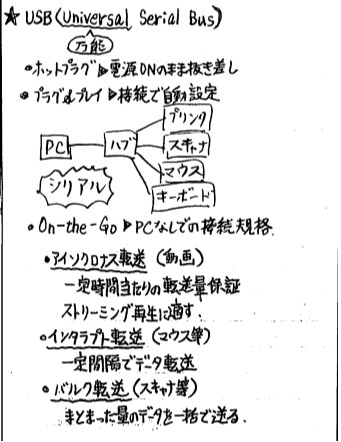 ★ USB (Universal Serial Bus)
万能
・ホットプラグ▷電源ONのまま抜き差し
・プラグ&プレイ▷接続で自動設定
プリンタ
PC ハブ スキャナ
マウス
シリアル キーボード
・On-the-Go▷PCなしでの接続規格.
・アイソクロナス転送 (動画)
一定時間当たりの転送量保証
ストリーミング再生に適す.
・インタラプト転送 (マウス等)
一定間隔でデータ転送
・バルク転送 (スキャナ等)
まとまった量のデータを一括で送る.